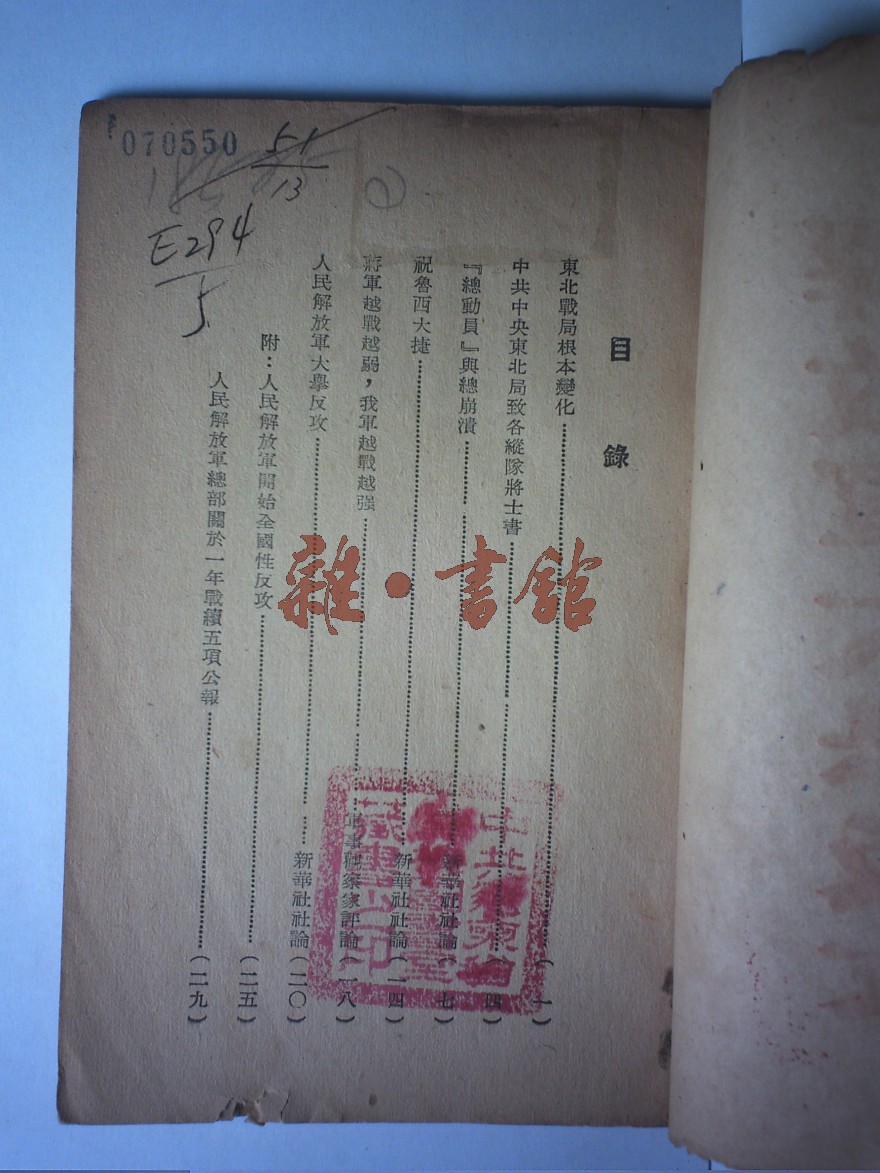 070550
51
13
①
E294
5
目錄
東北戰局根本變化……(一)
中共中央東北局致各縱隊將士書……(四)
『總動員』與總崩潰……新華社社論(七)
祝魯西大捷……新華社社論(一四)
蔣軍越戰越弱，我軍越戰越强……軍事觀察家評論(一八)
人民解放軍大舉反攻……新華社社論(二〇)
附：人民解放軍開始全國性反攻……(二五)
人民解放軍總部關於一年戰績五項公報……(二九)
雜·書館
中共
藏書之印